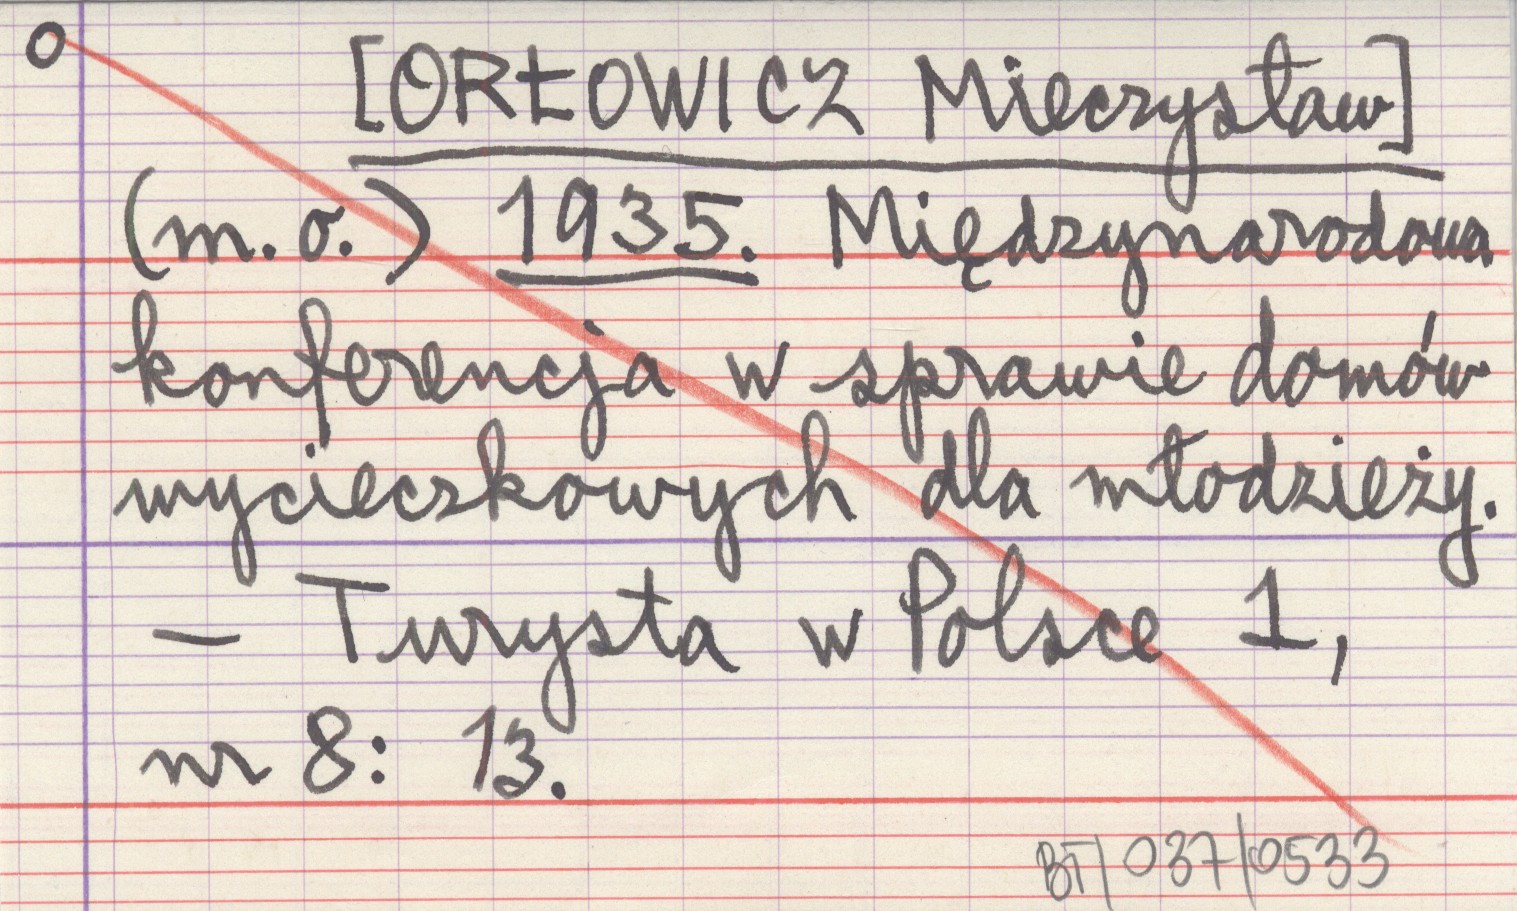 O
[ORŁOWICZ Mieczysław]
(m. o.) 1935. Międzynarodowa
konferencja w sprawie domów
wycieczkowych dla młodzieży.
— Turysta w Polsce 1,
nr 8: 13.
BT/037/0533